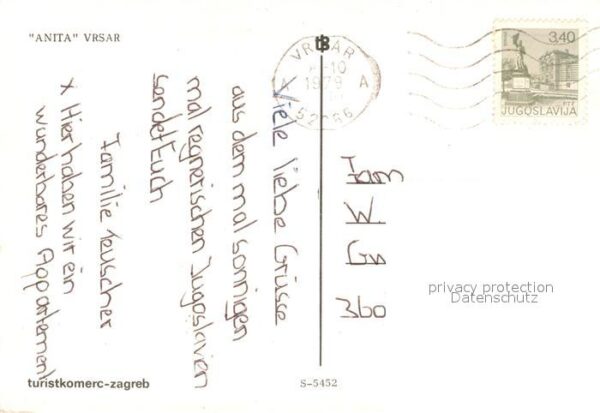 "ANITA" VRSAR
VRSAR
10
1979
A A
52366
3,40
PTT
JUGOSLAVIJA
Viele liebe Grüsse
aus dem mal sonnigen
mal regnerischen Jugoslavien
sendet Euch
Familie
x Hier haben wir ein
wunderbares Appartement
Fam
W.
G
360
privacy protection
Datenschutz
turistkomerc-zagreb
S-5452